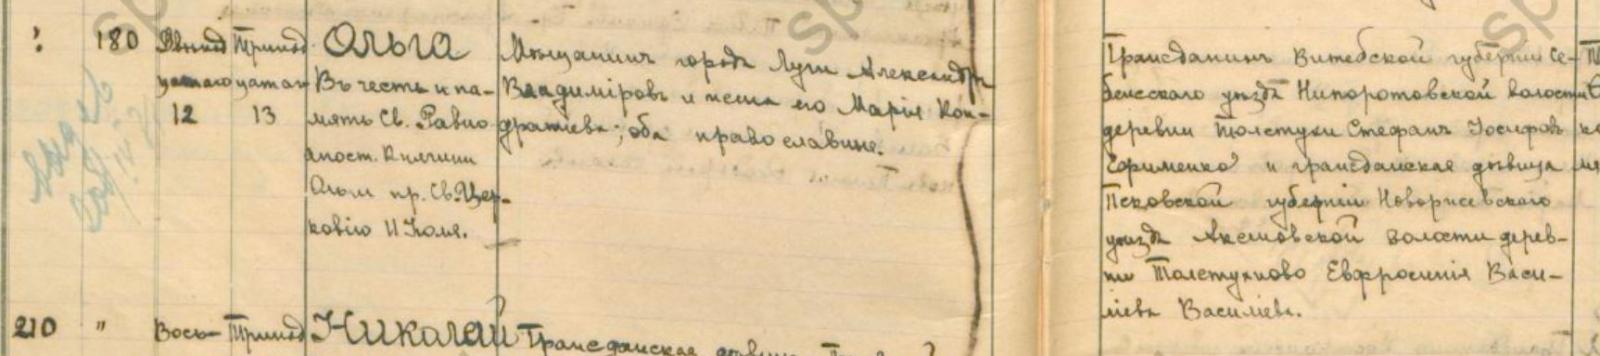 180
Двенад
цатаго
12
Тринад
цатаго
13
Ольга
Въ честь и па-
мять Св. Равно
апост. Княгини
Ольги пр. Св. Цер-
ковію 11 Іюля.
Мѣщанинъ города Луги Александръ
Владиміровъ и жена его Марія Кон-
дратіева; оба православные.
Гражданинъ Витебской губерніи Се-
бежскаго уѣзда Непоротовской волости
деревни Толстуки Стефанъ Іосифовъ
Ефименко и гражданская дѣвица
Псковской губерніи Новоржевскаго
уѣзда Аксеновской волости дерев-
ни Толстухново Евфросинія Васи-
ліева Васильева.
210
"
Вось-
Тринад
Николай
Гражданская дѣвица